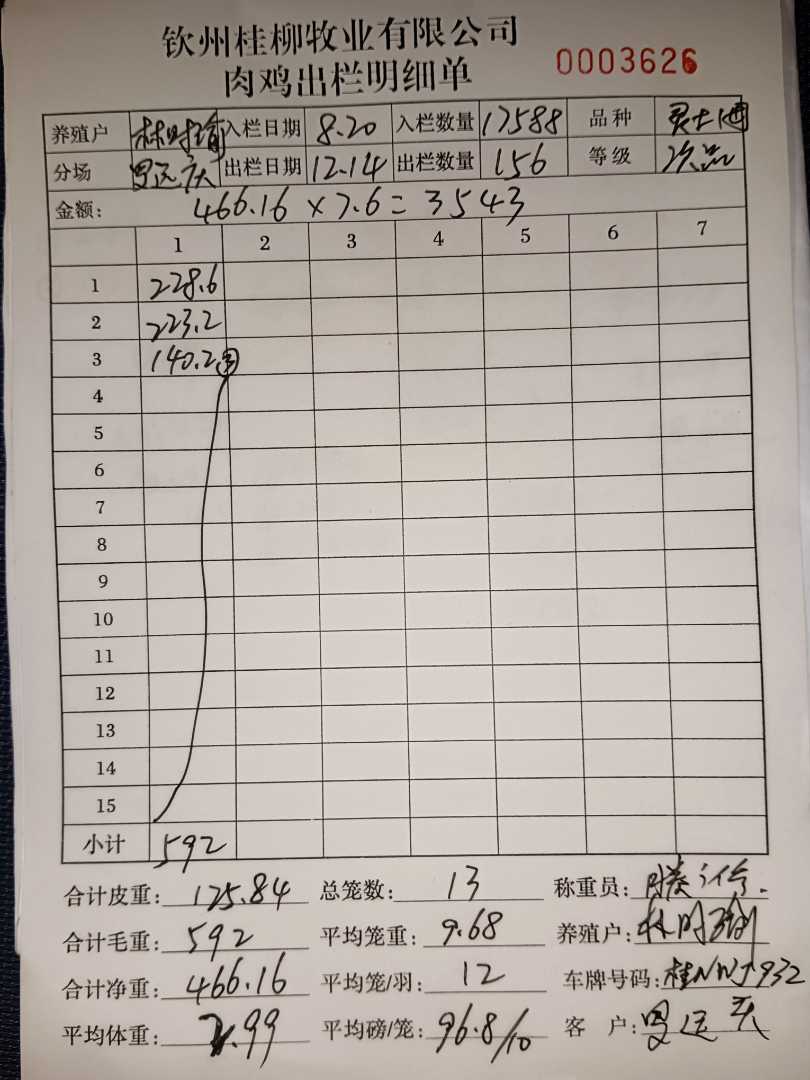 钦州桂柳牧业有限公司
肉鸡出栏明细单 0003626
养殖户 林时 入栏日期 8.20 入栏数量 17588 品种
分场 出栏日期 12.14 出栏数量 156 等级 次品
金额: 466.16 × 7.6 = 3543
1 2 3 4 5 6 7
1 228.6
2 223.2
3 140.2 ③
4
5
6
7
8
9
10
11
12
13
14
15
小计 592
合计皮重: 125.84 总笼数: 13 称重员:
合计毛重: 592 平均笼重: 9.68 养殖户: 林时
合计净重: 466.16 平均笼/羽: 12 车牌号码: 桂NWJ932
平均体重: 2.99 平均磅/笼: 96.8/10 客 户: